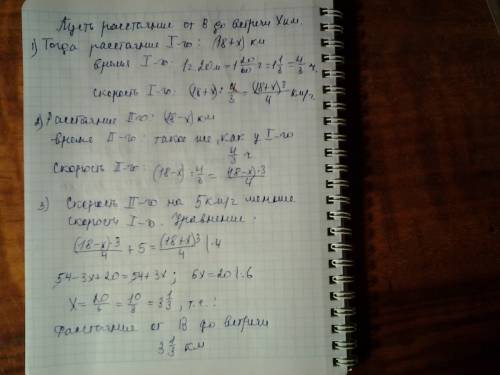 Пусть расстояние от В до встречи X км.
1) Тогда расстояние I-го: (18+x) км
время I-го: 1ч 20м = 1 20/60 ч = 1 1/3 = 4/3 ч.
скорость I-го: (18+x) : 4/3 = (18+x)3/4 км/ч.
2) Расстояние II-го: (18-x) км
время II-го: такое же, как у I-го
4/3 ч
Скорость II-го: (18-x) : 4/3 = (18-x)·3/4
3) Скорость II-го на 5 км/ч меньше
скорости I-го. Уравнение:
(18-x)·3/4 + 5 = (18+x)3/4 |·4
54-3x+20=54+3x; 6x=20 |:6
X = 20/6 = 10/3 = 3 1/3, т.е.:
Расстояние от В до встречи
3 1/3 км